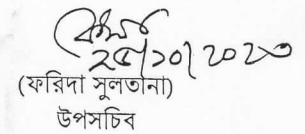 ২৫/১০/২০২৩
(ফরিদা সুলতানা)
উপসচিব